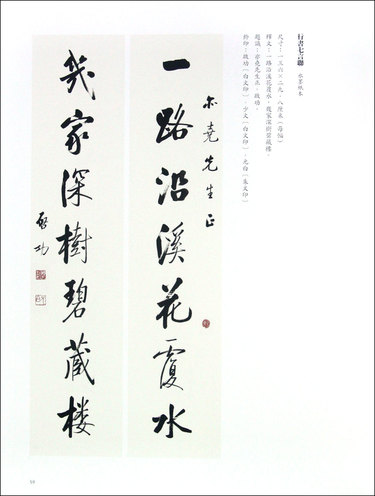 行書七言聯 水墨紙本
尺寸：一三六×二九．八厘米（每幅）
釋文：一路沿溪花覆水，幾家深樹碧藏樓。
題識：亦堯先生正，啟功。
鈐印：啟功（白文印）、少文（白文印）、元白（朱文印）
亦堯先生正
一路沿溪花覆水
幾家深樹碧藏楼
啟功